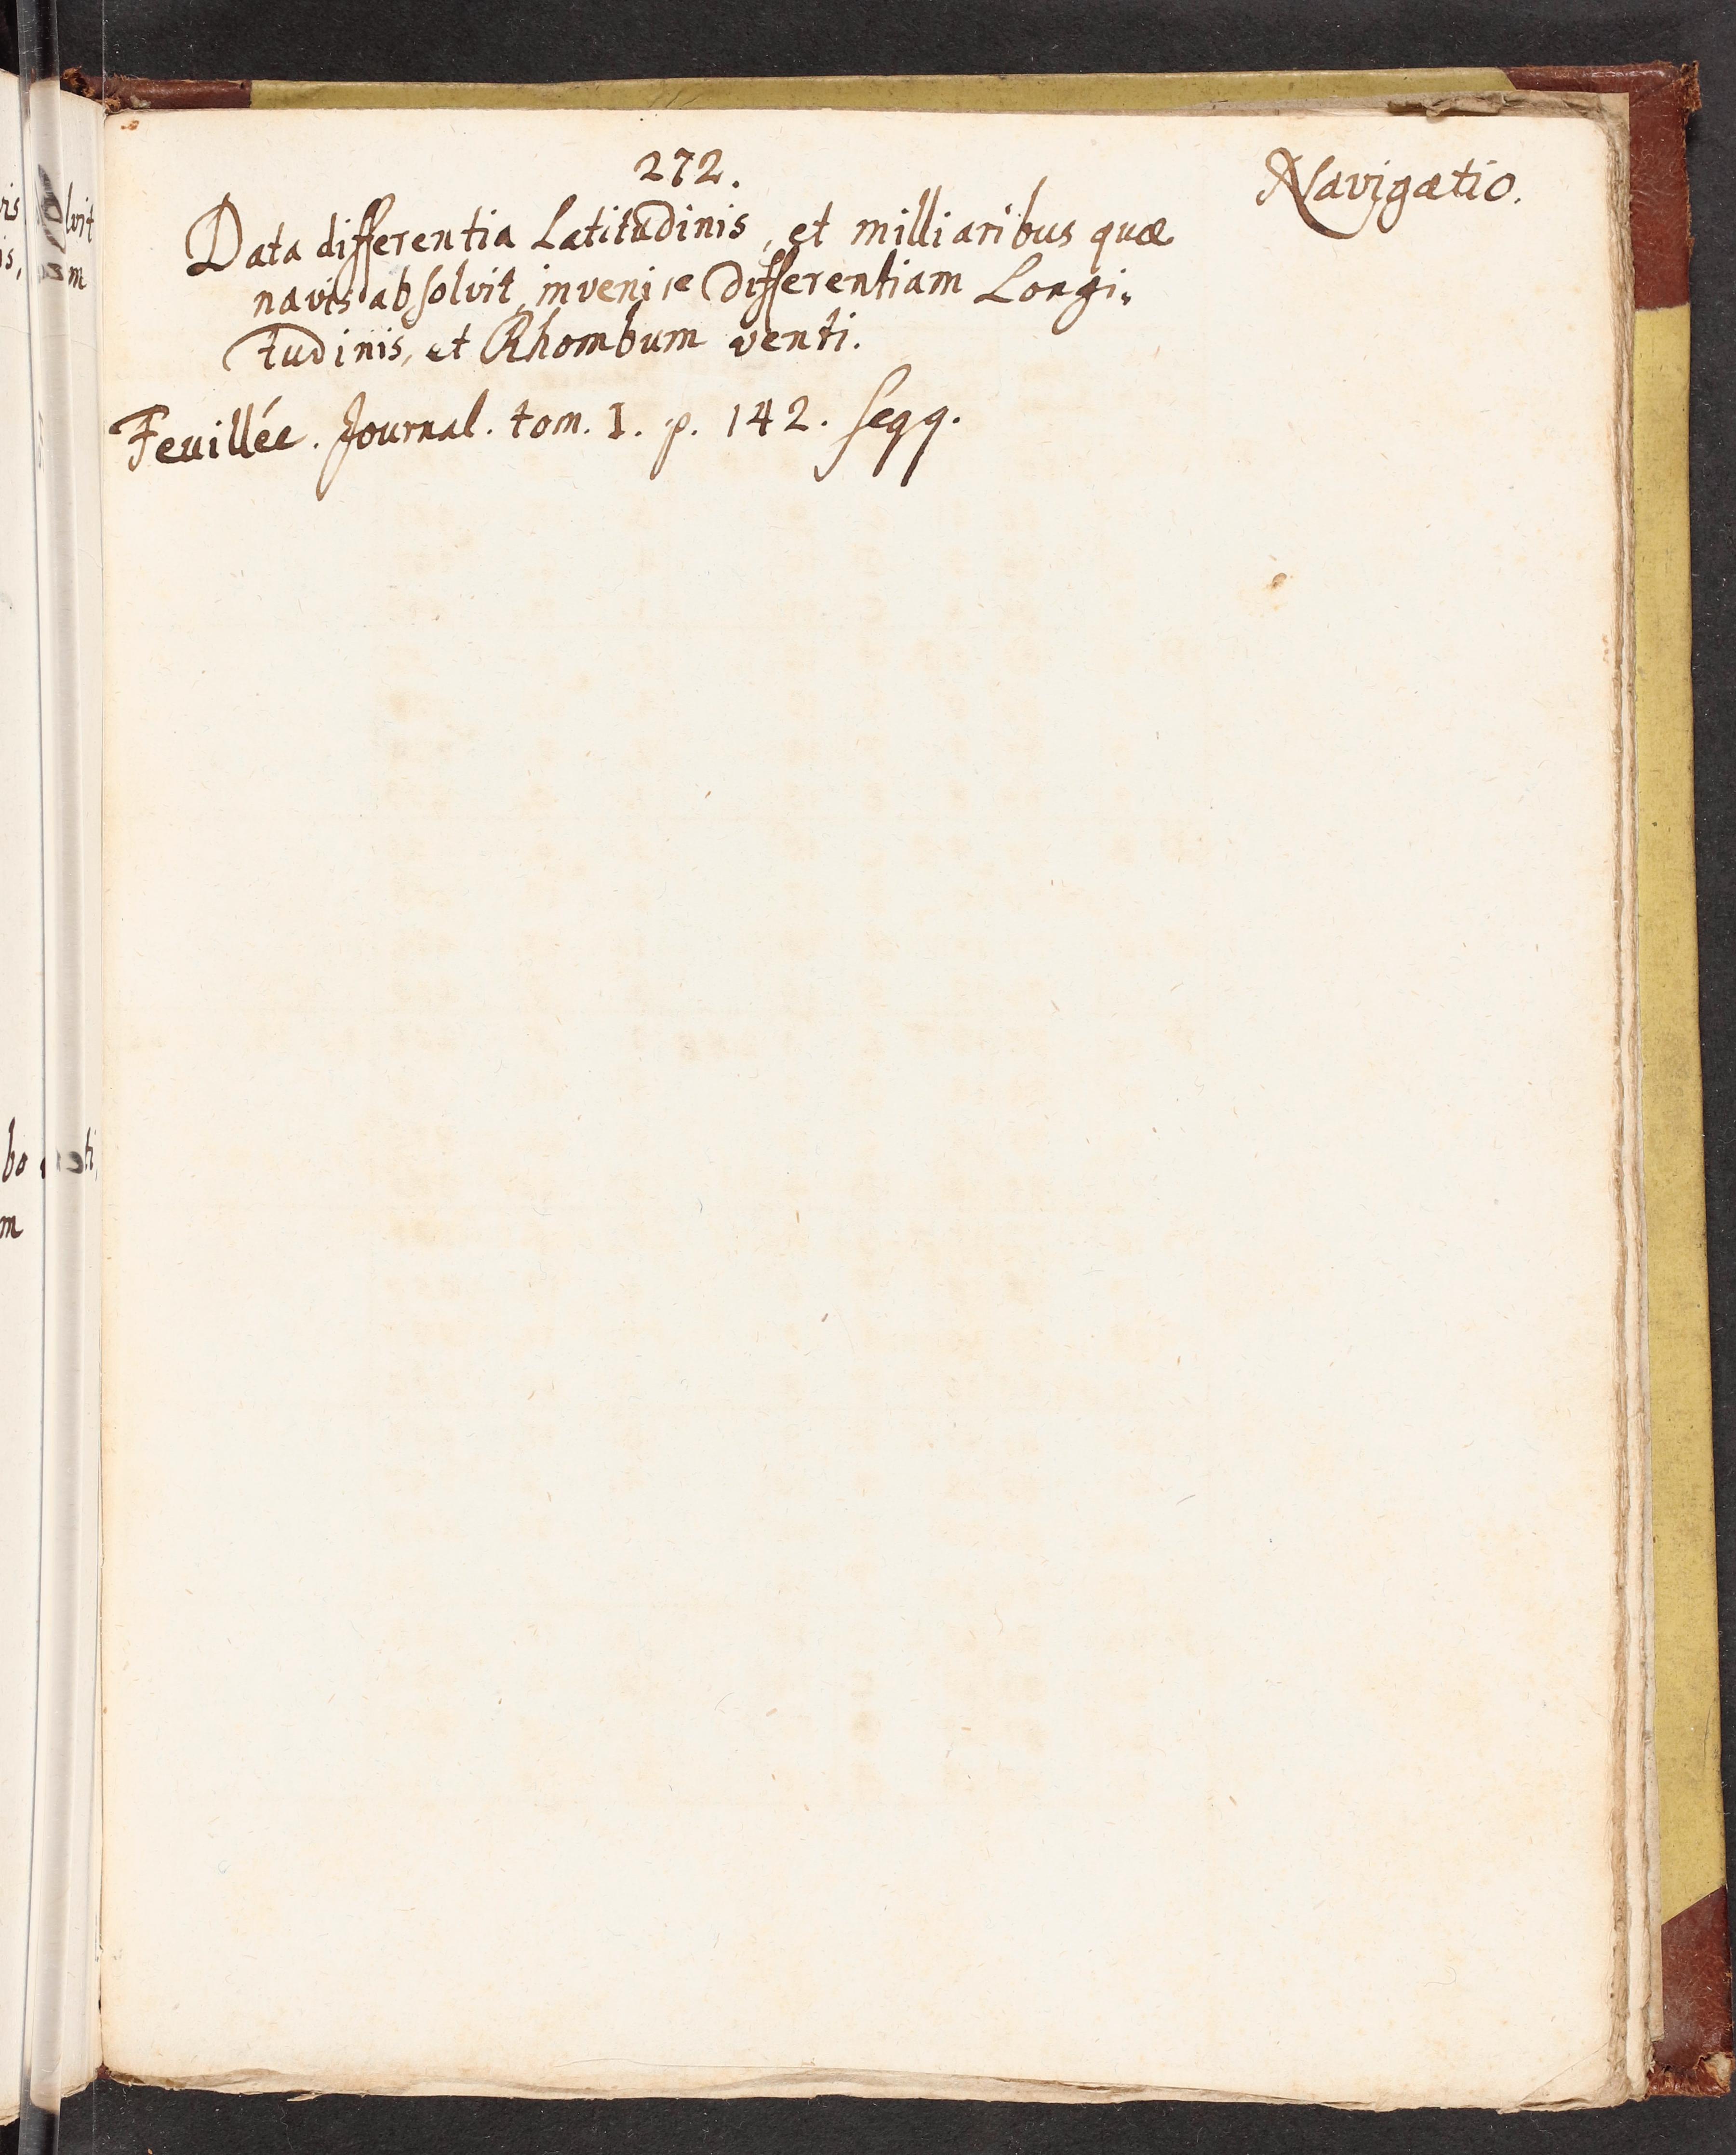 272.
Navigatio.
Data differentia Latitudinis, et milliaribus quæ
navis absolvit, invenire differentiam Longi-
tudinis, et Rhombum venti.
Feuillée. Journal. tom. I. p. 142. seqq.